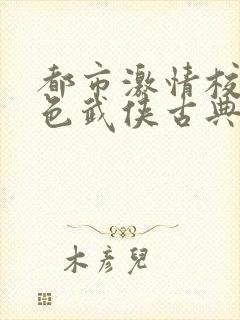 都市激情校
色武侠古典
木彦儿